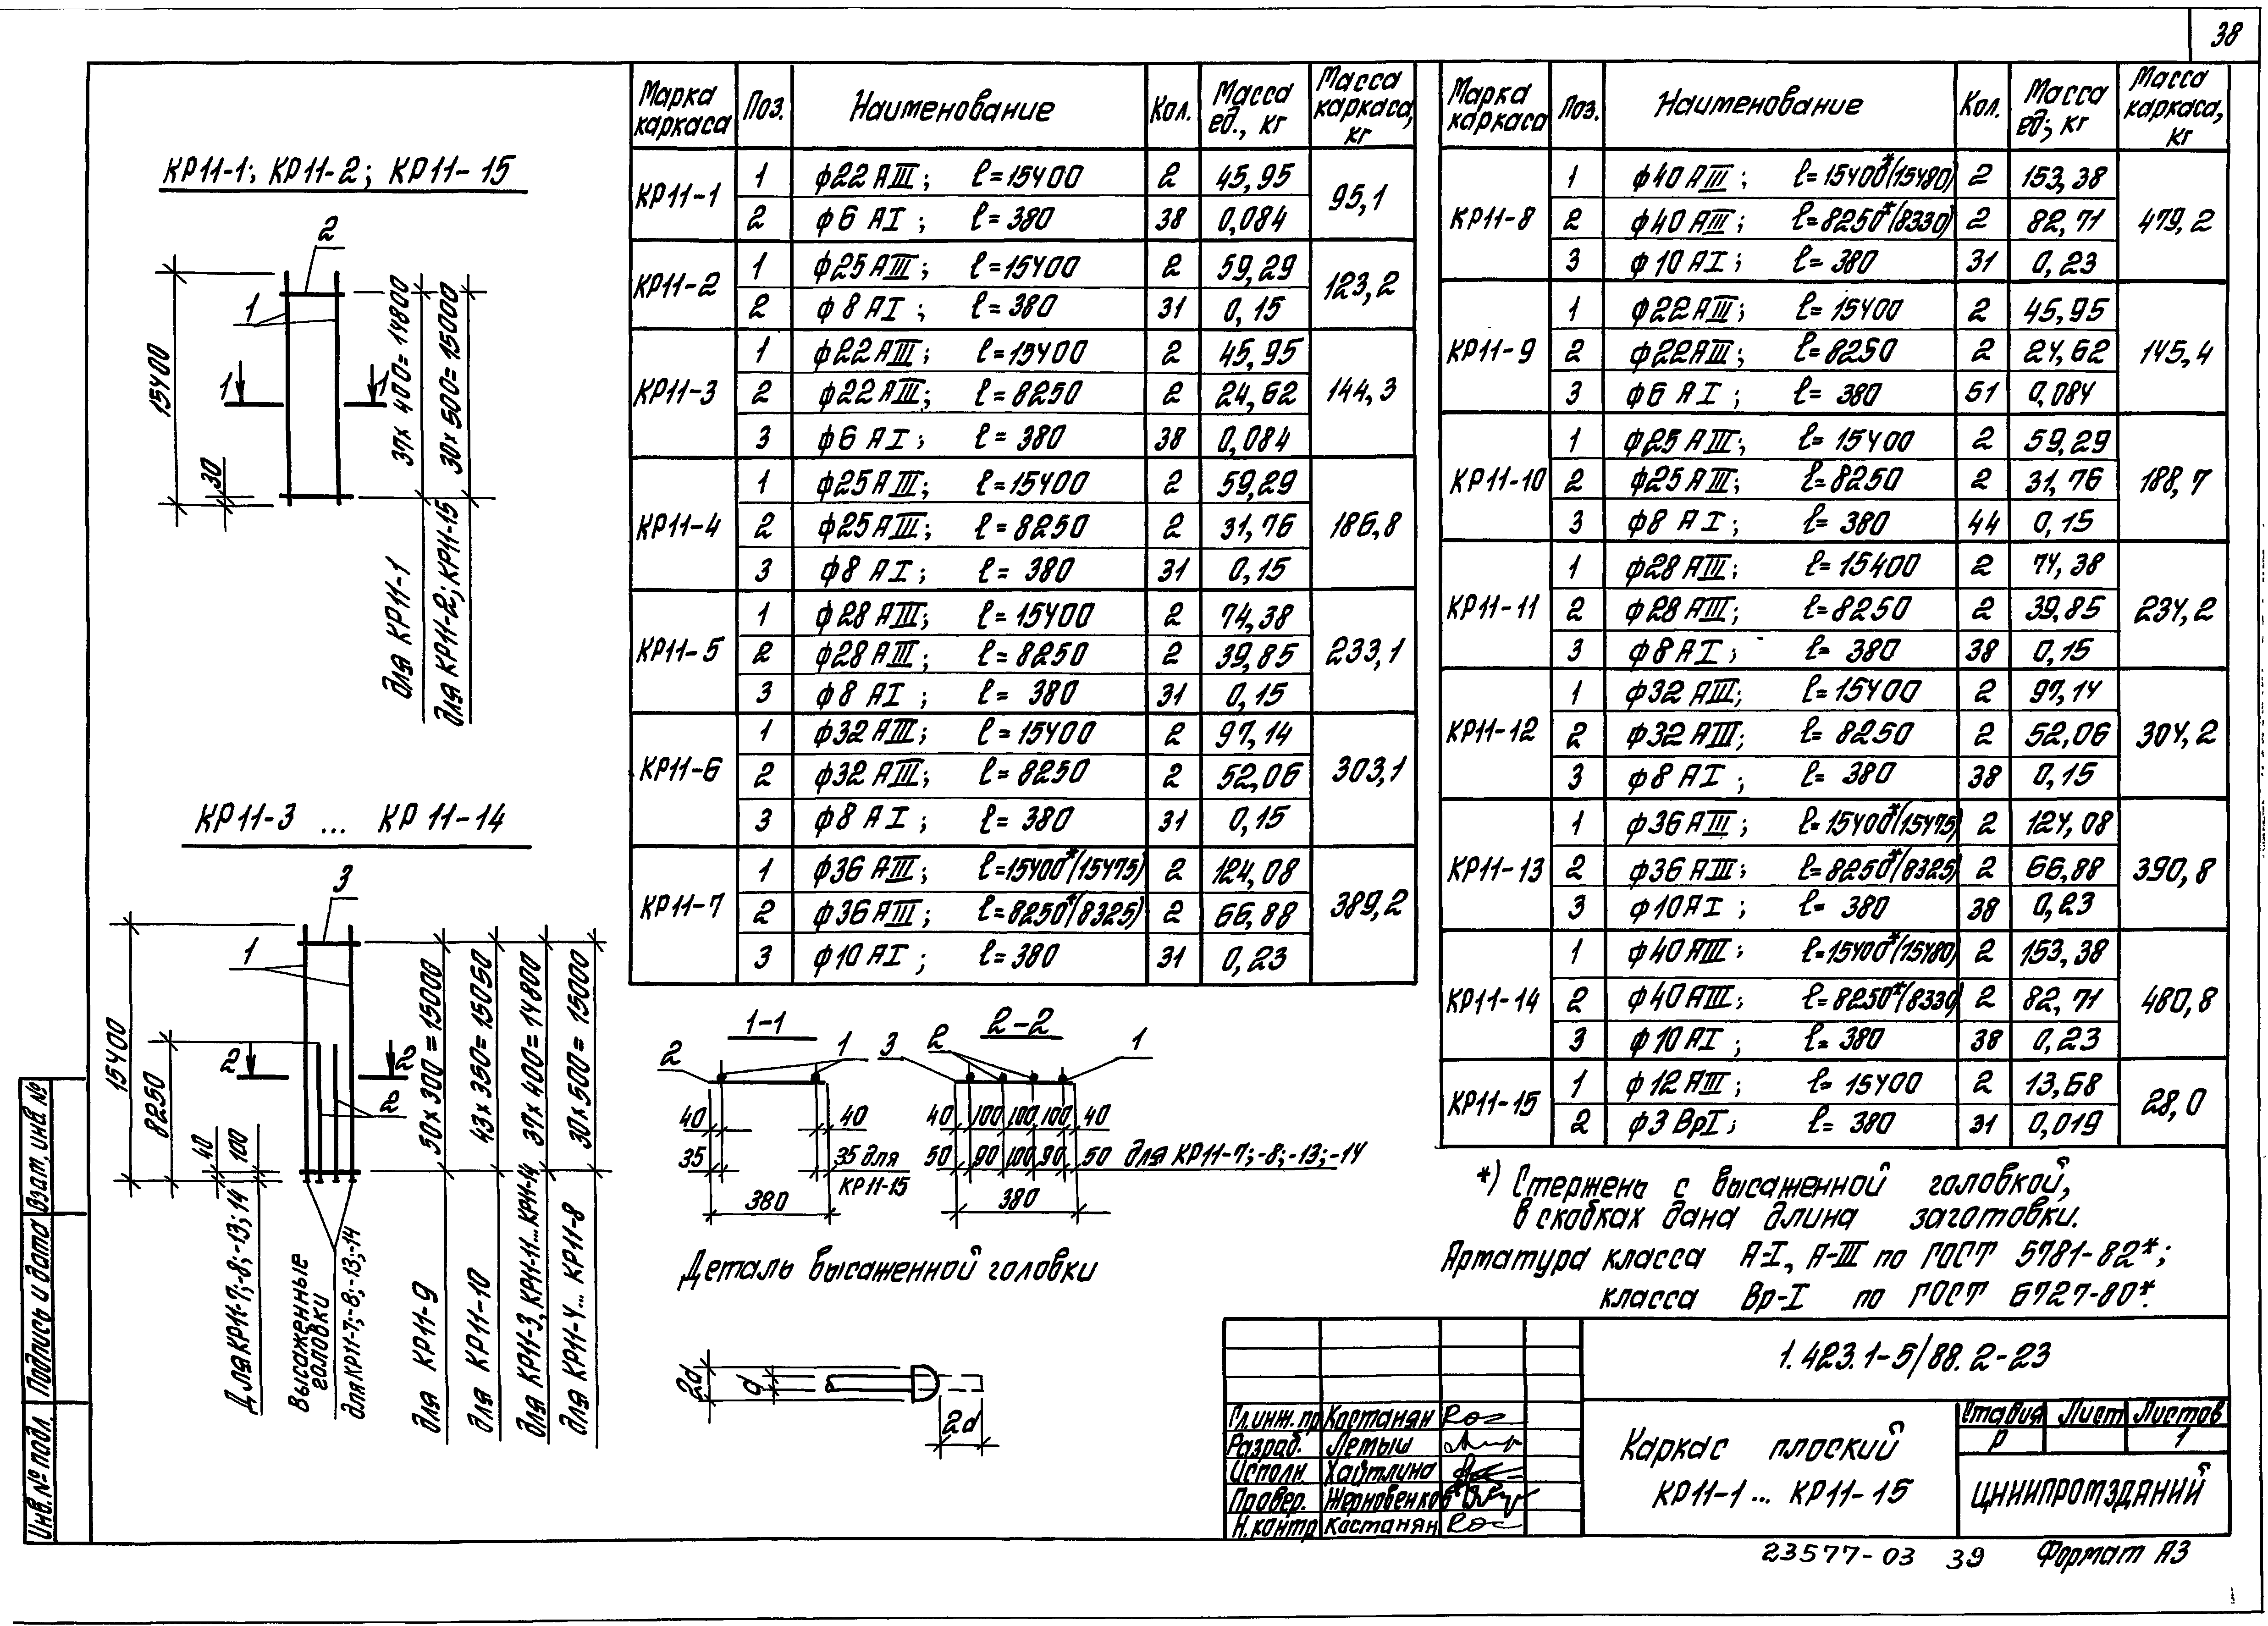 38
КР11-1; КР11-2; КР11-15
2
1
1 1
15400
30
37×400=14800
30×500=15000
для КР11-1
для КР11-2; КР11-15
КР11-3 ... КР11-14
3
1
2 2
2
15400
8250
40
100
50×300=15000
43×350=15050
37×400=14800
30×500=15000
Для КР11-7;-8;-13;-14
Высаженные
головки
для КР11-7;-8;-13;-14
для КР11-9
для КР11-10
для КР11-3, КР11-11...КР11-14
для КР11-4... КР11-8
Марка каркаса Поз. Наименование Кол. Масса ед., кг Масса каркаса, кг
КР11-1 1 ф22 АIII; ℓ=15400 2 45,95 95,1
2 ф6 АI; ℓ=380 38 0,084
КР11-2 1 ф25 АIII; ℓ=15400 2 59,29 123,2
2 ф8 АI; ℓ=380 31 0,15
КР11-3 1 ф22 АIII; ℓ=15400 2 45,95 144,3
2 ф22 АIII; ℓ=8250 2 24,62
3 ф6 АI; ℓ=380 38 0,084
КР11-4 1 ф25 АIII; ℓ=15400 2 59,29 186,8
2 ф25 АIII; ℓ=8250 2 31,76
3 ф8 АI; ℓ=380 31 0,15
КР11-5 1 ф28 АIII; ℓ=15400 2 74,38 233,1
2 ф28 АIII; ℓ=8250 2 39,85
3 ф8 АI; ℓ=380 31 0,15
КР11-6 1 ф32 АIII; ℓ=15400 2 97,14 303,1
2 ф32 АIII; ℓ=8250 2 52,06
3 ф8 АI; ℓ=380 31 0,15
КР11-7 1 ф36 АIII; ℓ=15400*(15475) 2 124,08 389,2
2 ф36 АIII; ℓ=8250*(8325) 2 66,88
3 ф10 АI; ℓ=380 31 0,23
Марка каркаса Поз. Наименование Кол. Масса ед; кг Масса каркаса, кг
КР11-8 1 ф40 АIII; ℓ=15400*(15480) 2 153,38 479,2
2 ф40 АIII; ℓ=8250*(8330) 2 82,71
3 ф10 АI; ℓ=380 31 0,23
КР11-9 1 ф22 АIII; ℓ=15400 2 45,95 145,4
2 ф22АIII; ℓ=8250 2 24,62
3 ф6 АI; ℓ=380 51 0,084
КР11-10 1 ф25 АIII; ℓ=15400 2 59,29 188,7
2 ф25 АIII; ℓ=8250 2 31,76
3 ф8 АI; ℓ=380 44 0,15
КР11-11 1 ф28 АIII; ℓ=15400 2 74,38 234,2
2 ф28 АIII; ℓ=8250 2 39,85
3 ф8 АI; ℓ=380 38 0,15
КР11-12 1 ф32 АIII; ℓ=15400 2 97,14 304,2
2 ф32 АIII; ℓ=8250 2 52,06
3 ф8 АI; ℓ=380 38 0,15
КР11-13 1 ф36 АIII; ℓ=15400*(15475) 2 124,08 390,8
2 ф36 АIII; ℓ=8250*(8325) 2 66,88
3 ф10АI; ℓ=380 38 0,23
КР11-14 1 ф40 АIII; ℓ=15400*(15480) 2 153,38 480,8
2 ф40 АIII; ℓ=8250*(8330) 2 82,71
3 ф10 АI; ℓ=380 38 0,23
КР11-15 1 ф12 АIII; ℓ=15400 2 13,68 28,0
2 ф3 ВрI; ℓ=380 31 0,019
1-1
2 1
40 40
35 35 для
КР11-15
380
2-2
3 2 1
40 100 100 100 40
50 90 100 90 50 для КР11-7;-8;-13;-14
380
Деталь высаженной головки
2d
d
2d
*) Стержень с высаженной головкой,
в скобках дана длина заготовки.
Арматура класса А-I, А-III по ГОСТ 5781-82*;
класса Вр-I по ГОСТ 6727-80*.
1.423.1-5/88.2-23
Гл.инж.пр Костанян
Разраб. Летыш
Исполн. Хайтлина
Провер. Жерновенков
Н.контр Костанян
Каркас плоский
КР11-1 ... КР11-15
Стадия Лист Листов
Р 1
ЦНИИПРОМЗДАНИЙ
Инв. № подл. Подпись и дата Взат. инв. №
23577-03 39 Формат А3